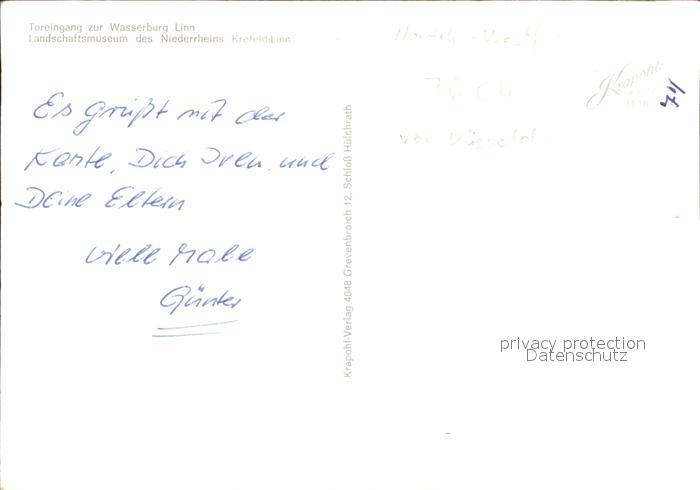 Toreingang zur Wasserburg Linn
Landschaftsmuseum des Niederrheins Krefeld-Linn
Es grüßt mit der
Karte, Dich Sven und
Deine Eltern
viele Male
Günter
Krapohl-Verlag 4048 Grevenbroich 12, Schloß Hülchrath
Krapohl
privacy protection
Datenschutz